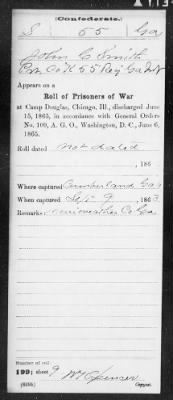 (Confederate.)
S 55 Ga
John C Smith
Pvt Co K 55 Reg Ga Inf
Appears on a
Roll of Prisoners of War
at Camp Douglas, Chicago, Ill., discharged June
15, 1865, in accordance with General Orders
No. 109, A. G. O., Washington, D. C., June 6,
1865.
Roll dated
Not dated
, 186
Where captured Cumberland Gap
When captured Sept 9, 1863
Remarks: Meriweather Co Ga
Number of roll:
199; sheet 9
Spencer
(639b)
Copyist.